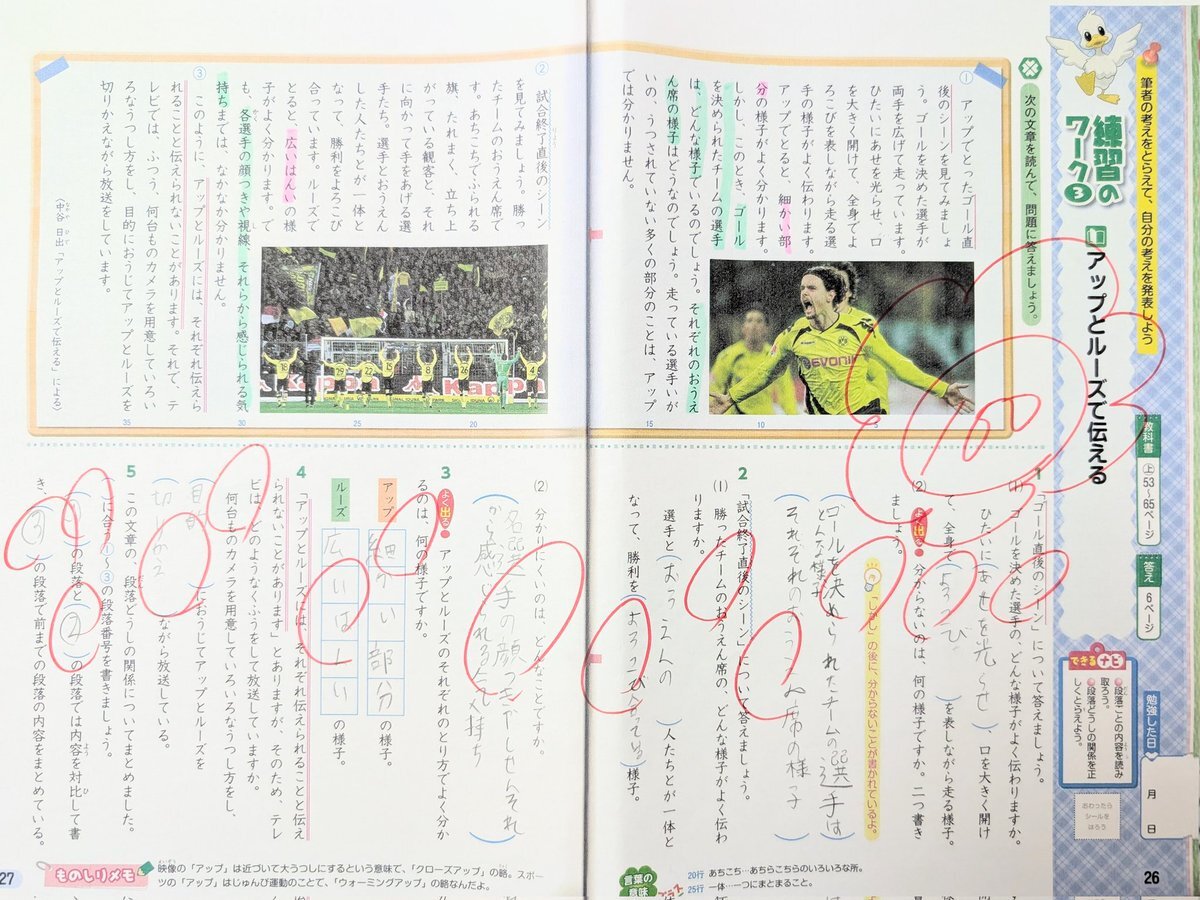 筆者の考えをとらえて、自分の考えを発表しよう
練習の
ワーク③
アップとルーズで伝える
教科書
上53〜65ページ
答え
6ページ
できるナビ
段落ごとの内容を読み
取ろう。
段落どうしの関係を正
しくとらえよう。
勉強した日
月
日
おわったら
シールを
はろう
次の文章を読んで、問題に答えましょう。
①
アップでとったゴール直
後のシーンを見てみましょ
う。ゴールを決めた選手が
両手を広げて走っています。
ひたいにあせを光らせ、口
を大きく開けて、全身でよ
ろこびを表しながら走る選
手の様子がよく伝わります。
アップでとると、細かい部
分の様子がよく分かります。
しかし、このとき、ゴール
を決められたチームの選手
は、どんな様子でいるのでしょう。それぞれのおうえ
ん席の様子はどうなのでしょう。走っている選手いが
いの、うつされていない多くの部分のことは、アップ
では分かりません。
10
15
②
試合終了直後のシーン
を見てみましょう。勝っ
たチームのおうえん席で
す。あちこちでふられる
旗、たれまく、立ち上
がっている観客と、それ
に向かって手をあげる選
手たち。選手とおうえん
した人たちとが一体と
なって、勝利をよろこび
合っています。ルーズで
とると、広いはんいの様
子がよく分かります。で
も、各選手の顔つきや視線、それらから感じられる気
持ちまでは、なかなか分かりません。
③
このように、アップとルーズには、それぞれ伝えら
れることと伝えられないことがあります。それで、テ
レビでは、ふつう、何台ものカメラを用意していろい
ろなうつし方をし、目的におうじてアップとルーズを
切りかえながら放送をしています。
20
25
30
35
〈中谷 日出「アップとルーズで伝える」による〉
EVONIK
Kappa
1 「ゴール直後のシーン」について答えましょう。
(1) ゴールを決めた選手の、どんな様子がよく伝わりますか。
ひたいに(あせを光らせ)、口を大きく開け
て、全身で(よろこび)を表しながら走る様子。
(2) よく出る 分からないのは、何の様子ですか。二つ書き
ましょう。
「しかし」の後に、分からないことが書かれているよ。
ゴールを決められたチームの選手は
どんな様子
それぞれのおうえん席の様子
2 「試合終了直後のシーン」について答えましょう。
(1) 勝ったチームのおうえん席の、どんな様子がよく伝わ
りますか。
選手と(おうえんの)人たちとが一体と
なって、勝利を(よろこび合っている)様子。
(2) 分かりにくいのは、どんなことですか。
名選手の顔つきやしせんそれ
から感じられる気持ち
3 よく出る アップとルーズのそれぞれのとり方でよく分か
るのは、何の様子ですか。
アップ 細かい部分の様子。
ルーズ 広いはんいの様子。
4 「アップとルーズには、それぞれ伝えられることと伝え
られないことがあります」とありますが、そのため、テレ
ビは、どのようなくふうをして放送していますか。
何台ものカメラを用意していろいろなうつし方をし、
(目的)におうじてアップとルーズを
(切りかえ)ながら放送している。
5 この文章の、段落どうしの関係についてまとめました。
( )に合う①〜③の段落番号を書きましょう。
(①)の段落と(②)の段落では内容を対比して書
き、(③)の段落で前までの段落の内容をまとめている。
ものしりメモ
映像の「アップ」は近づいて大うつしにするという意味で、「クローズアップ」の略。スポー
ツの「アップ」はじゅんび運動のことで、「ウォーミングアップ」の略なんだよ。
27
言葉の
意味
プラス
20行 あちこち…あちらこちらのいろいろな所。
25行 一体…一つにまとまること。
26